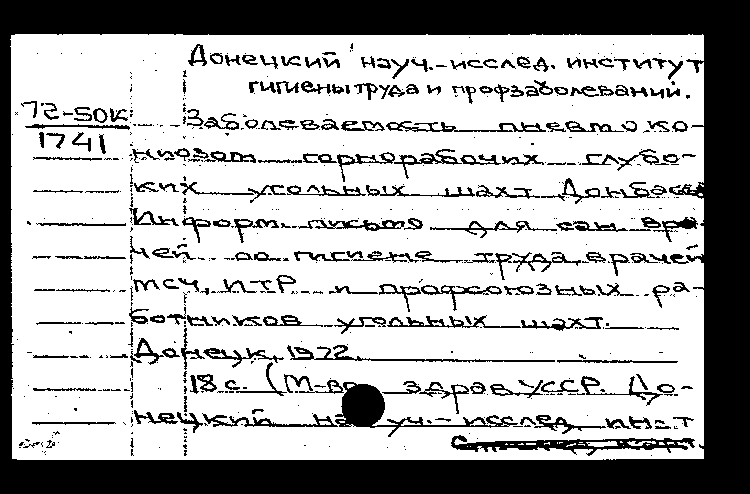 Донецкий науч.-исслед. институт
гигиены труда и профзаболеваний.
72-50К
1741
Заболеваемость пневмоко-
ниозом горнорабочих глубо-
ких угольных шахт Донбасса
Информ. письмо для сан вра-
чей по гигиене труда, врачей
мсч, ИТР и профсоюзных ра-
ботников угольных шахт.
Донецк, 1972.
18 с. (М-во здрав. УССР. До-
нецкий науч.-исслед. ин-т